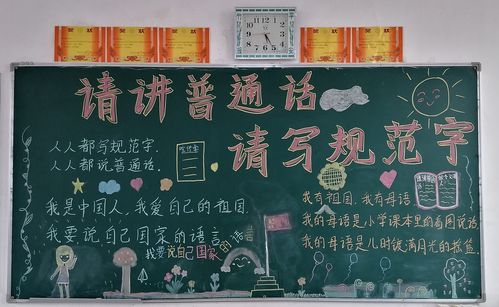 奖状
奖状
奖状
奖状
奖状
请讲普通话
请写规范字
人人都写规范字.
人人都说普通话.
我是中国人,我爱自己的祖国.
我要说自己国家的语言
我要说自己国家的语言
我有祖国,我有母语
我的母语是小学课本里的看图说话
我的母语是儿时银满月光的摇篮